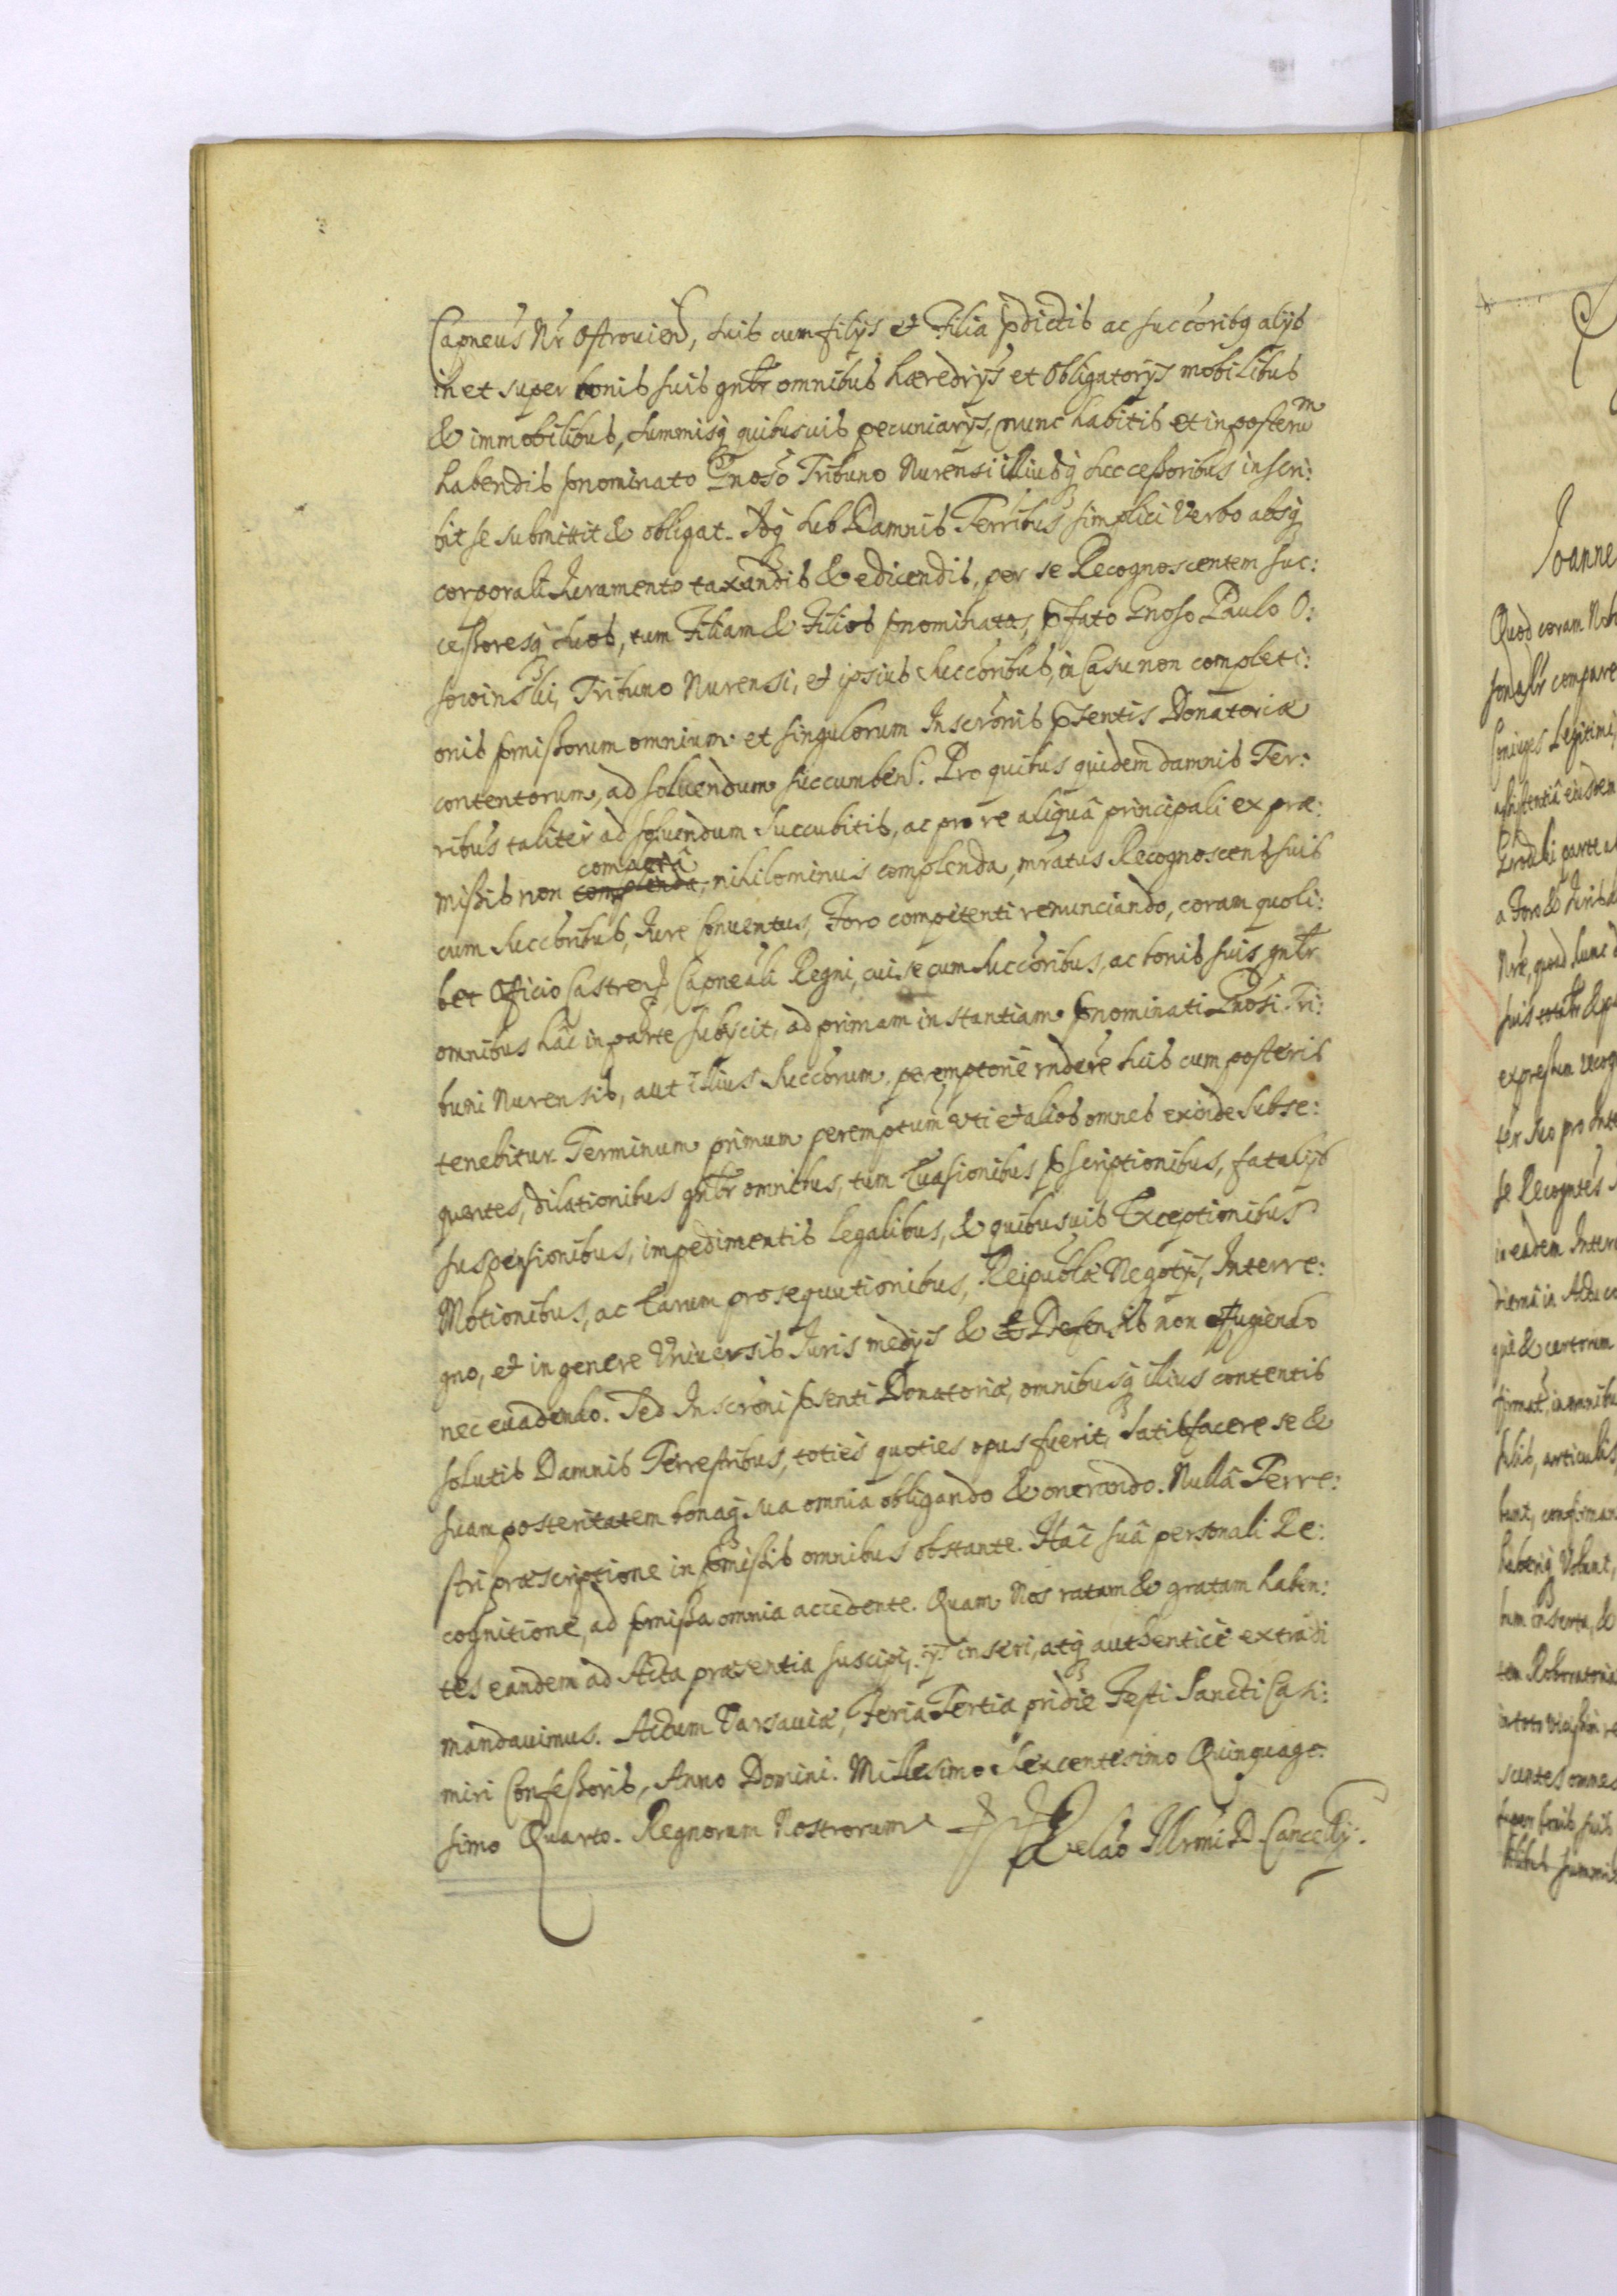 Capneus Nr Ostrouien, suis cum filijs et Filia pdictis ac succoribq alijs
in et super bonis suis gnlr omnibus hæredrijs et Obligatorijs mobilibus
& immobilibus, summisq quibusuis pecuniarijs, nunc habitis et in posteru m
habendis pnominato Gnoso Tribuno Nurensi illiusq successoribus inscri:
bit se submittit & obligat. Idq sub Damnis Terribus simplici Verbo absq
corporali Iuramento taxandis & edicendis, per se Recognoscentem suc:
cessoresq suos, tum Filiam & Filios pnominatos, pfato Gnoso Paulo O:
sowinski, Tribuno Nurensi, et ipsius succoribus, in Casu non completi:
onis pmissorum omnium et singulorum Inscronis psentis Donatoriæ
contentorum, ad soluendum succumben. Pro quibus quidem damnis Ter:
ribus taliter ad soluendum succubitis, ac pro re aliquâ principali ex præ:
missis non completâ complenda, nihilominus complenda, mratus Recognoscens suis
cum succoribus, Iure Conuentus, Foro competenti renunciando, coram quoli:
bet Officio Castren, Capneali Regni, cui se cum succoribus, ac bonis suis gnlr
omnibus hâc in parte subijcit, ad primam instantiam pnominati Gnosi Tri:
buni Nurensis, aut illius succorum, peremptorie rndere suis cum posteris
tenebitur. Terminum primum peremptum uti et alios omnes exinde subse:
quentes, dilationibus gnlr omnibus, tum Euasionibus pscriptionibus, fatalijs
suspensionibus, impedimentis legalibus, & quibusuis Exceptionibus
Motionibus, ac Earum prosequutionibus, Reipublæ Negotijs, Interre:
gno, et in genere Vniuersis Iuris medijs & & Defensis non effugiendo
nec euadendo. Sed Inscroni psenti Donatoriæ, omnibusq illius contentis
solutis Damnis Terrestribus, toties quoties opus fuerit, satisfacere se &
suam posteritatem bonaq sua omnia obligando & onerando. Nullâ Terre:
stri præscriptione in pmissis omnibus obstante. Hâc suâ personali Re:
cognitione, ad pmissa omnia accedente. Quam Nos ratam & gratam haben:
tes eandem ad Acta præsentia suscipi, ijs inseri, atq authenticè extradi
mandauimus. Actum Varsauiæ, Feria Tertia pridie Festi Sancti Casi:
miri Confessoris, Anno Domini. Millesimo Sexcentesimo Quinquage:
simo Quarto. Regnorum Nostrorum
Relao Illrmi D Cancellrij.
Joanne
Quod coram
Coniuges Legitimi,